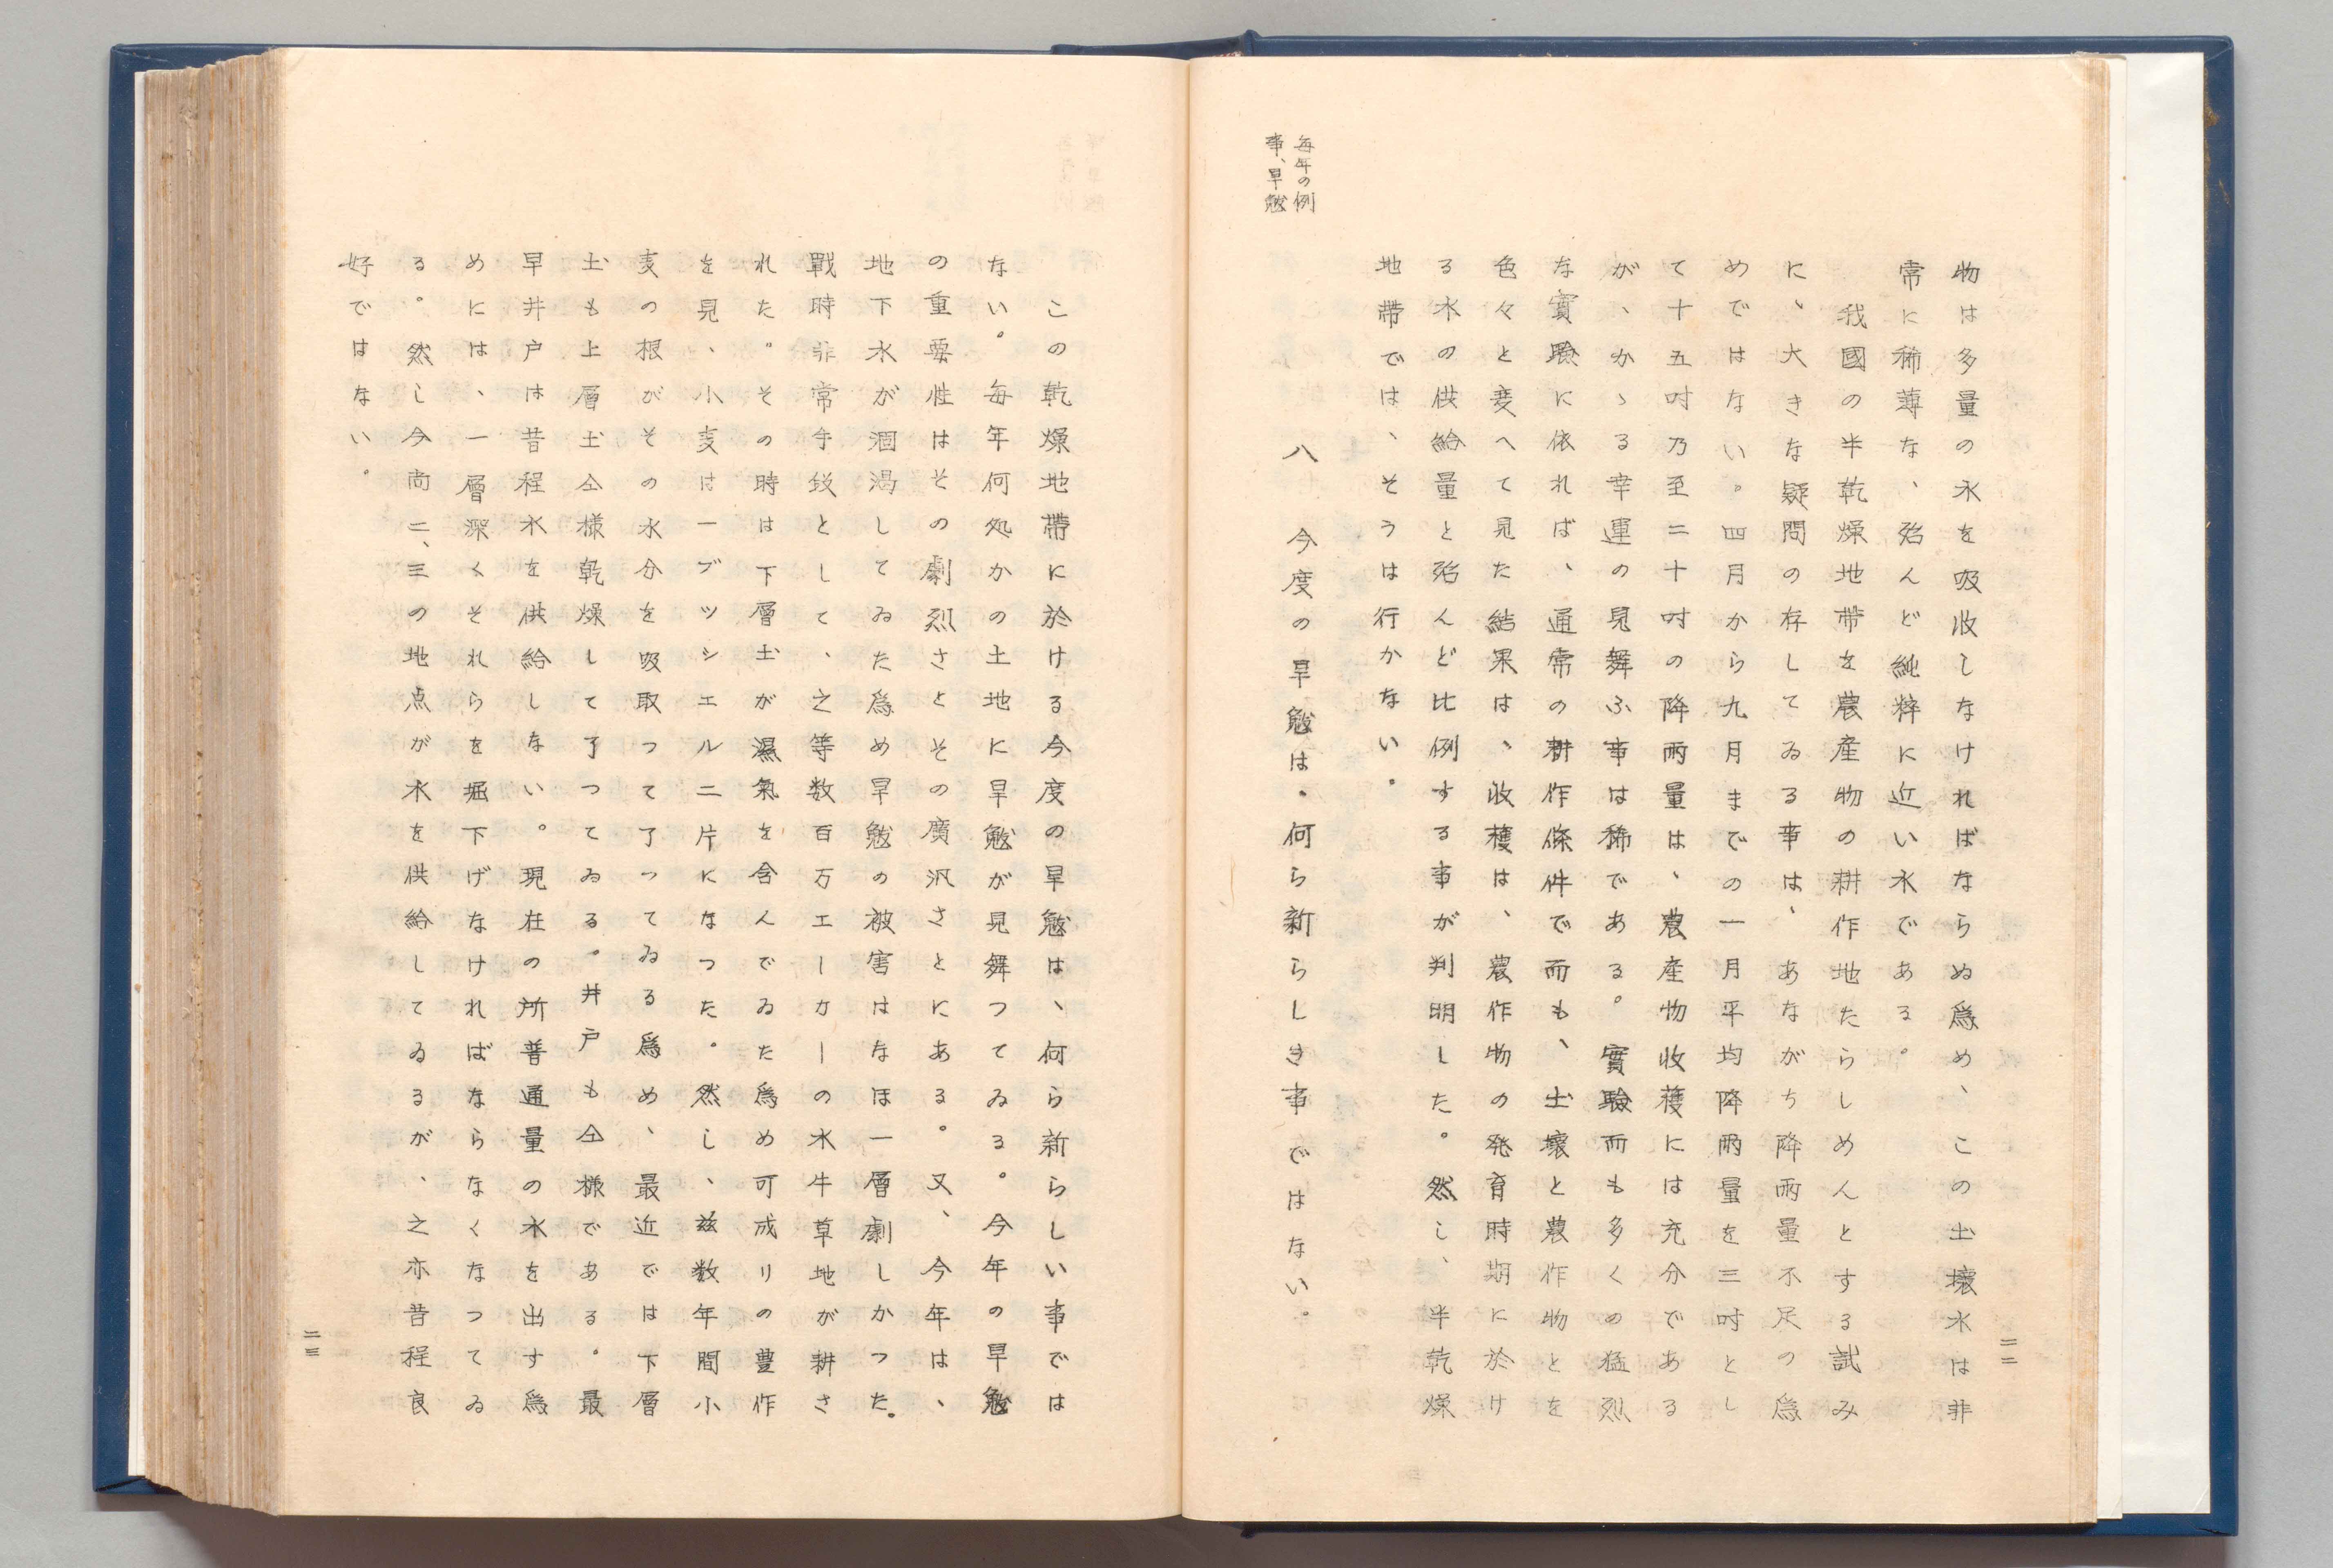 二二
物は多量の水を吸收しなければならぬ爲め、この土壤水は非
常に稀薄な、殆んど純粹に近い水である。
我國の半乾燥地帶を農産物の耕作地たらしめんとする試み
に、大きな疑問の存してゐる事は、あながち降雨量不足の爲
めではない。四月から九月までの一月平均降雨量を三吋とし
て十五吋乃至二十吋の降雨量は、農産物收穫には充分である
が、かゝる幸運の見舞ふ事は稀である。實驗而も多くの猛烈
な實驗に依れば、通常の耕作條件で而も、土壤と農作物とを
色々と変へて見た結果は、收穫は、農作物の発育時期に於け
る水の供給量と殆んど比例する事が判明した。然し、半乾燥
地帶では、そうは行かない。
毎年の例
事、旱魃
八 今度の旱魃は・何ら新らしき事ではない。
この乾燥地帶に於ける今度の旱魃は、何ら新らしい事では
ない。毎年何処かの土地に旱魃が見舞つてゐる。今年の旱魃
の重要性はその劇烈さとその廣汎さとにある。又、今年は、
地下水が涸渇してゐた爲め旱魃の被害はなほ一層劇しかつた。
戰時非常手段として、之等数百万エーカーの水牛草地が耕さ
れた。その時は下層土が濕氣を含んでゐた爲め可成りの豊作
を見、小麦は一ブツシエル二片になつた。然し、玆数年間小
麦の根がその水分を吸取つて了つてゐる爲め、最近では下層
土も上層土仝様乾燥して了つてゐる。井戸も仝様である。最
早井戸は昔程水を供給しない。現在の所普通量の水を出す爲
めには、一層深くそれらを堀下げなければならなくなつてゐ
る。然し今尚二、三の地点が水を供給してゐるが、之亦昔程良
好ではない。
二三